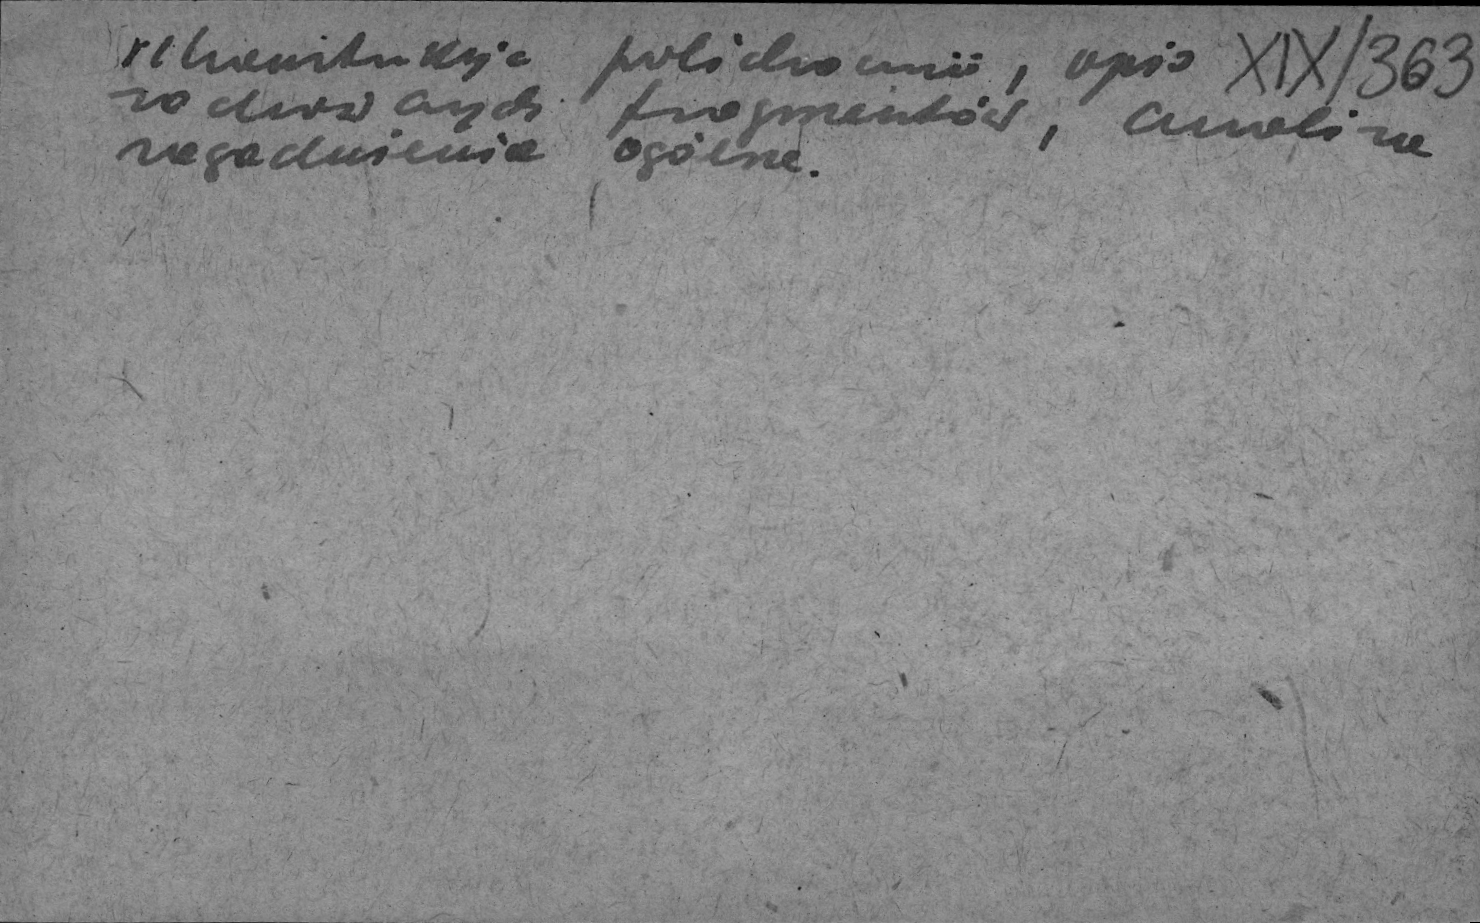 rekonstrukcja polichromii, opis XIX/363
zachowanych fragmentów, analiza
zagadnienia ogólne.